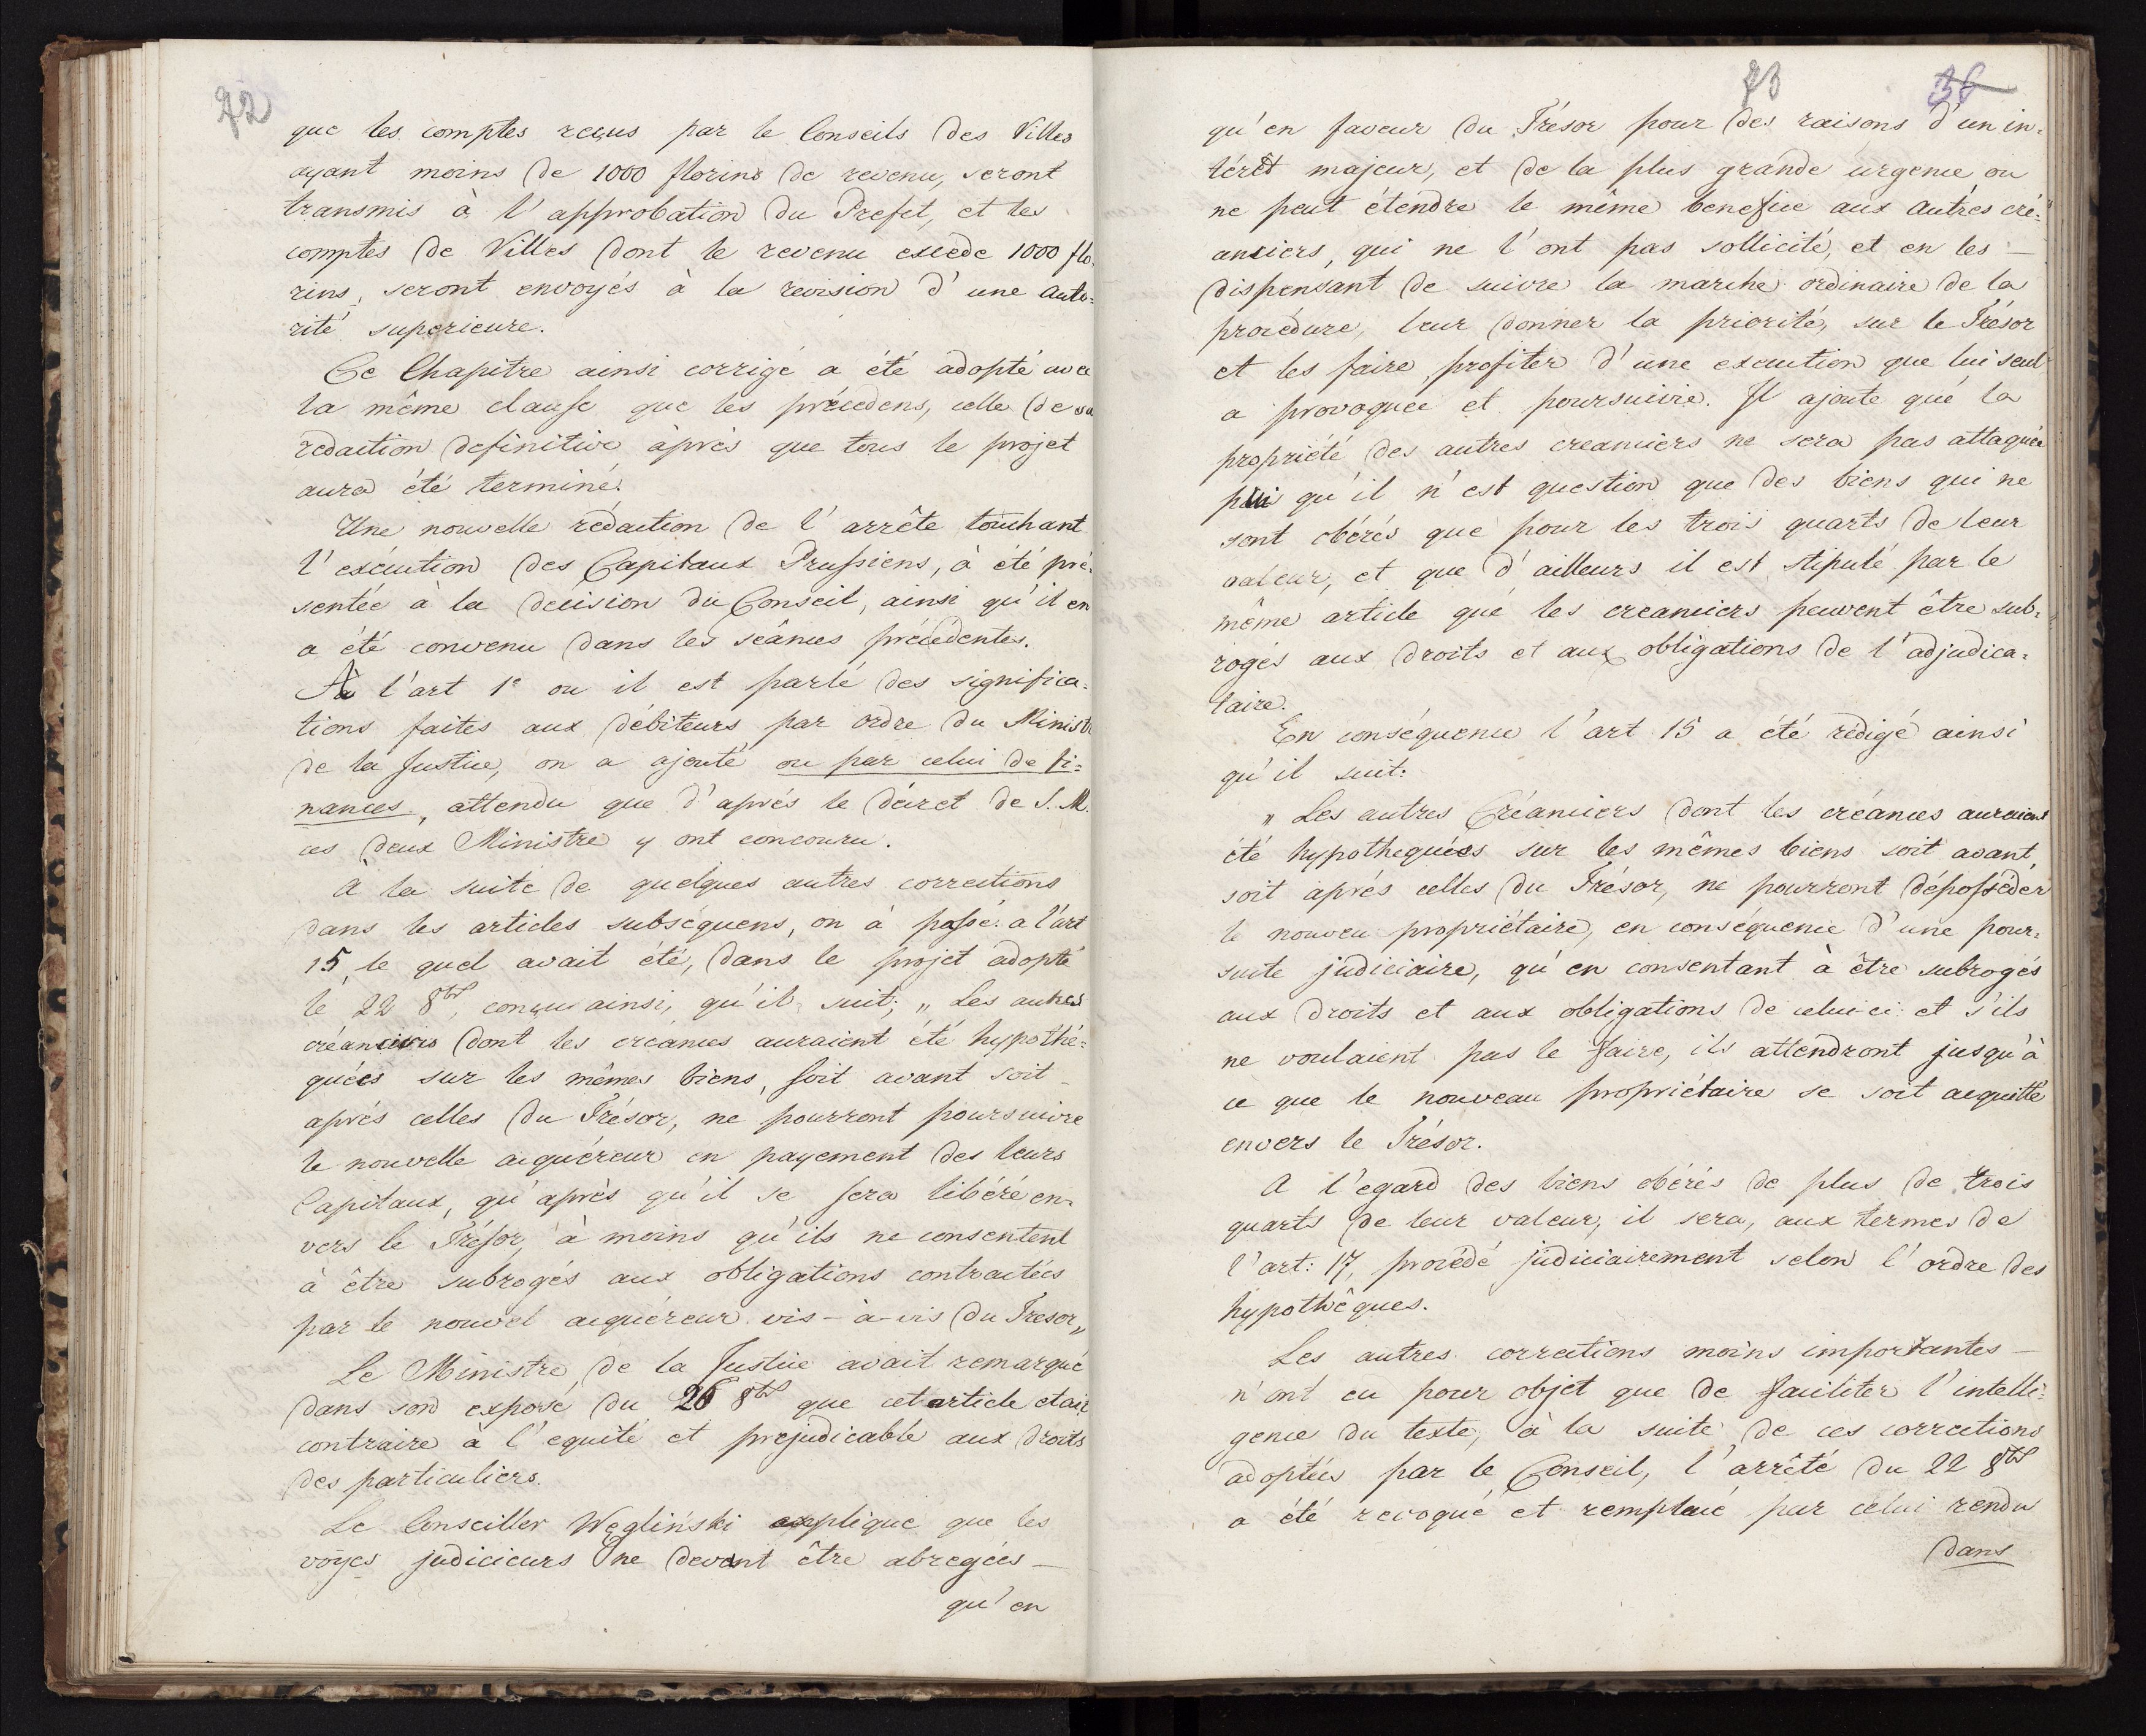 72
que les comptes reçus par le Conseils des Villes
ayant moins de 1000 florins de revenu, seront
transmis à l'approbation du Prefet, et les
comptes de Villes dont le revenu excede 1000 flo-
rins, seront envoyés à la revision d'une auto=
rité superieure.
Ce Chapitre ainsi corrigé a été adopté avec
la même clause que les précedens, celle de sa
redaction definitive après que tous le projet
aura été terminé.
Une nouvelle rédaction de l'arrête touchant
l'exécution des Capitaux Prussiens, à été pré-
sentée à la decision du Conseil, ainsi qu'il en
a été convenu dans les séances précedentes.
A l'art 1e ou il est parlé des significa=
tions faites aux débiteurs par ordre du Ministre
de la Justice, on a ajouté ou par celui de fi=
nances, attendu que d'aprés le décret de S. M.
ces deux Ministre y ont concouru.
à la suite de quelques autres corrections
dans les articles subséquens, on à passé a l'art
15, le quel avait été, dans le projet adopté
le 22 8bre, conçu ainsi, qu'il suit; „ Les autres
créanciers dont les créances auraient été hypothé=
quées sur les mêmes biens, soit avant soit –
aprés celles du Trésor, ne pourront poursuivre
le nouvelle acquéreur en payement des leurs
Capitaux, qu'après qu'il se sera libéré en-
vers le Trésor, à moins qu'ils ne consentent
à être subrogés aux obligations contractées
par le nouvel acquéreur vis-à-vis du Tresor„
Le Ministre de la Justice avait remarqué
dans son exposé du 26 8bre que cet article etait
contraire à l'equité et prejudicable aux droits
des particuliers.
Le Conseiller Węgliński explique que les
voyes judicieurs ne devant être abregées –
qu'en
73 38
qu'en faveur du Trésor pour des raisons d'un in=
térêt majeur, et de la plus grande urgence on
ne peut étendre le même benefice aux autres cré=
anciers, qui ne l'ont pas sollicité, et en les –
dispensant de suivre la marche ordinaire de la
procédure, leur donner la priorité, sur le Trésor
et les faire profiter d'une execution que lui seul
a provoquée et poursuivie. Il ajoute que la
propriété des autres creanciers ne sera pas attaquée
puis qu'il n'est question que des biens qui ne
sont obérés que pour les trois quarts de leur
valeur, et que d'ailleurs il est stipulé par le
même article que les creanciers peuvent être sub=
rogés aux droits et aux obligations de l'adjudica=
taire.
En conséquence l'art 15 a été rédigé ainsi
qu'il suit:
„ Les autres Créanciers dont les créances auraient
été hypothequées sur les mêmes biens soit avant,
soit aprés celles du Trésor, ne pourront dépossédér
le nouveu propriétaire, en conséquence d'une pour=
suite judiciaire, qu'en consentant à être subrogés
aux droits et aux obligations de celui-ci et s'ils
ne voulaient pas le faire, ils attendront jusqu'à
ce que le nouveau propriétaire se soit acquitté
envers le Trésor.
A l'egard des biens obérés de plus de trois
quarts de leur valeur, il sera, aux termes de
l'art: 17, procédé judiciairement selon l'ordre des
hypothêques.
Les autres corrections moins importantes –
n'ont eu pour objet que de faciliter l'intelli=
gence du texte, à la suite de ces corrections
adoptées par le Conseil, l'arrêté du 22 8bre
a été revoqué et remplacé par celui rendu
dans